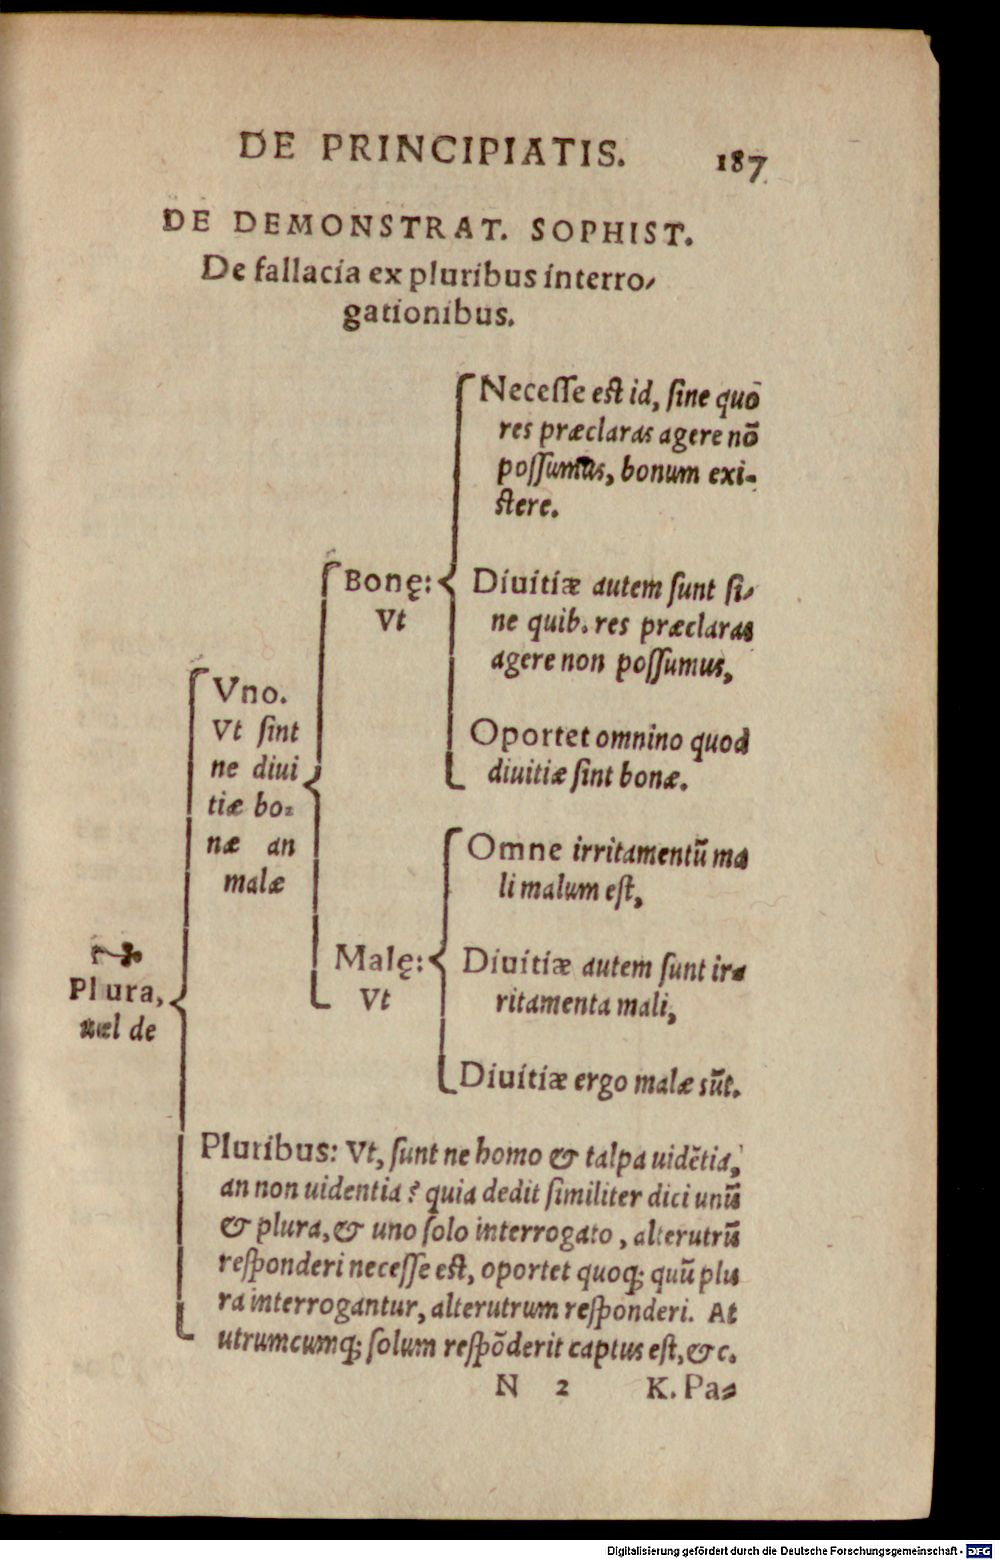 DE PRINCIPIATIS. 187
DE DEMONSTRAT. SOPHIST.
De fallacia ex pluribus interro-
gationibus.
Necesse est id, sine quo
res præclaras agere nõ
possumus, bonum exi-
stere.
Bonę:
Vt
Diuitiæ autem sunt si-
ne quib. res præclaras
agere non possumus,
Oportet omnino quod
diuitiæ sint bonæ.
Vno.
Vt sint
ne diui
tiæ bo-
næ an
malæ
Omne irritamentũ ma
li malum est,
Malę:
Vt
Diuitiæ autem sunt ir-
ritamenta mali,
Diuitiæ ergo malæ sũt.
Plura,
uel de
Pluribus: Vt, sunt ne homo & talpa uidẽtia,
an non uidentia? quia dedit similiter dici unũ
& plura, & uno solo interrogato, alterutrũ
responderi necesse est, oportet quoq; quũ plu
ra interrogantur, alterutrum responderi. At
utrumcumq; solum respõderit captus est, &c.
N 2 K. Pa-
Digitalisierung gefördert durch die Deutsche Forschungsgemeinschaft - DFG